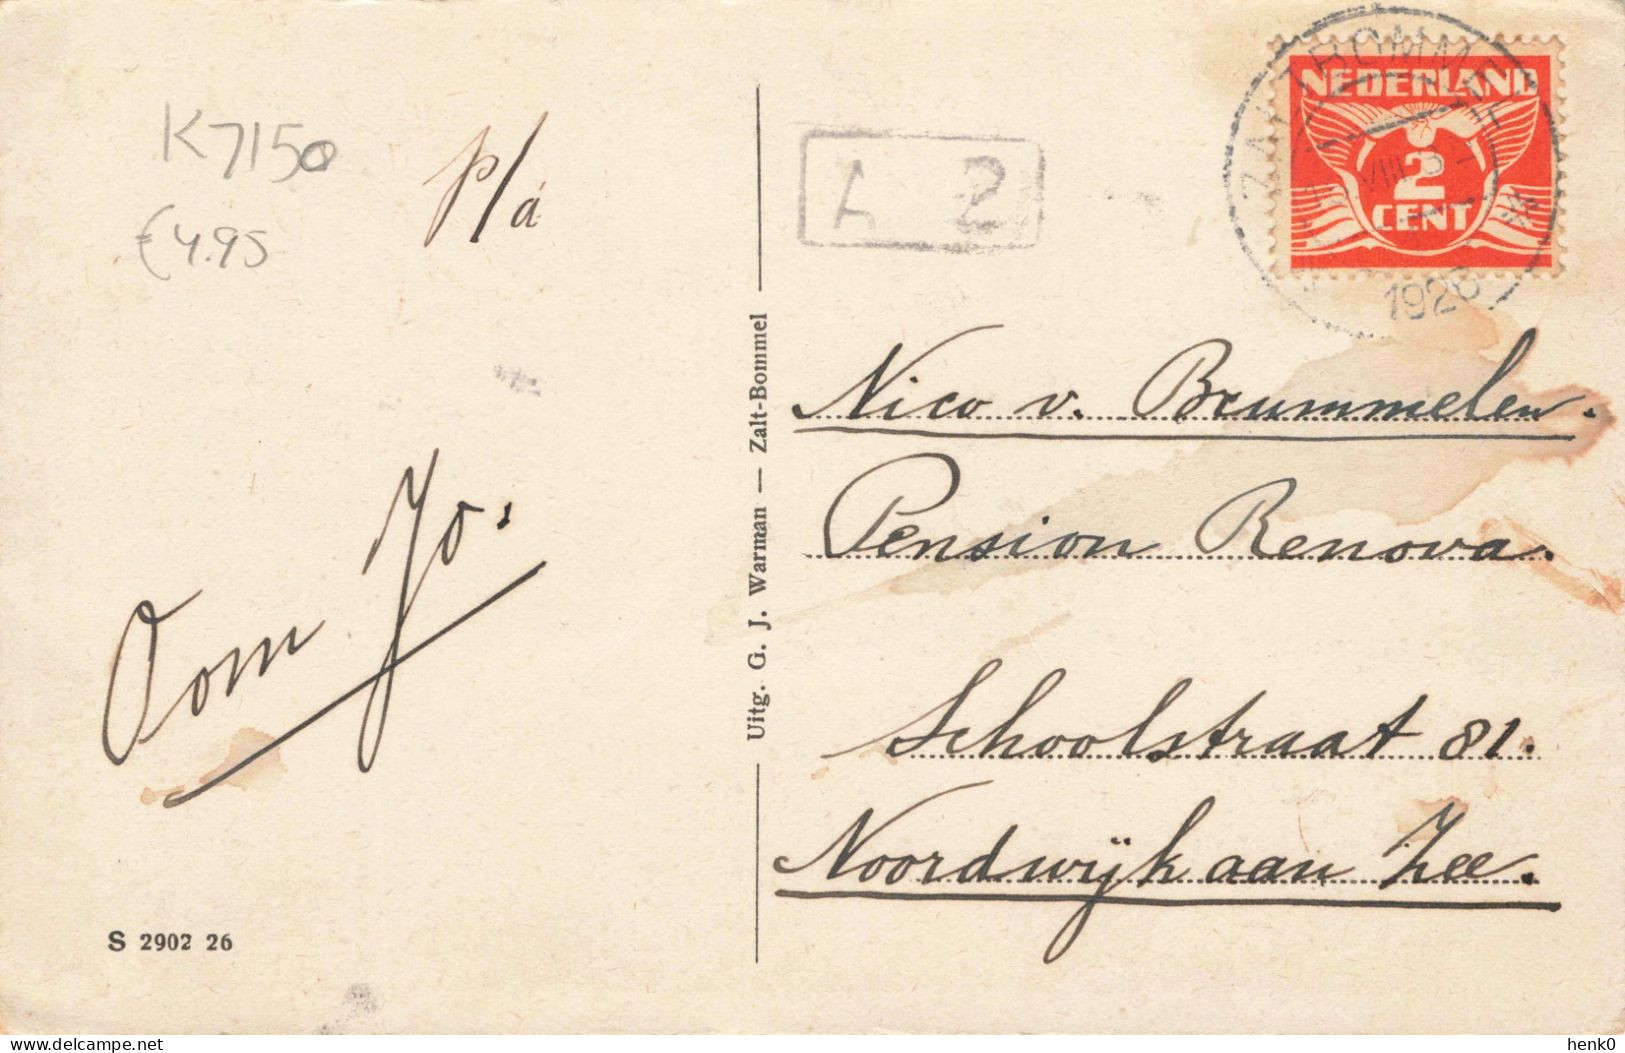 K7150
€4.95
p/a
A 2
ZALTBOMMEL
VIII
1926
NEDERLAND
2
CENT
Nico v. Brummelen.
Pension Renova.
Schoolstraat 81.
Noordwijk aan Zee.
Oom Jo.
Uitg. G. J. Warman — Zalt-Bommel
S 2902 26
henk0